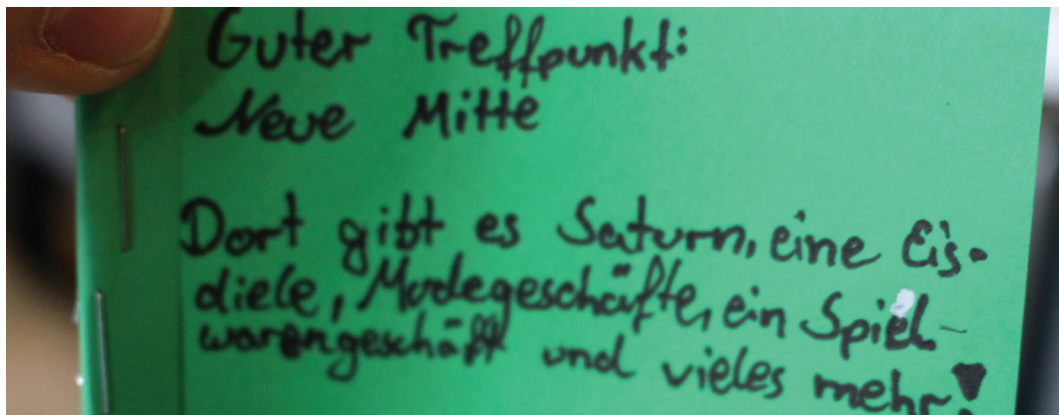 Guter Treffpunkt:
Neue Mitte
Dort gibt es Saturn, eine Eis-
diele, Modegeschäfte, ein Spiel-
warengeschäft und vieles mehr!